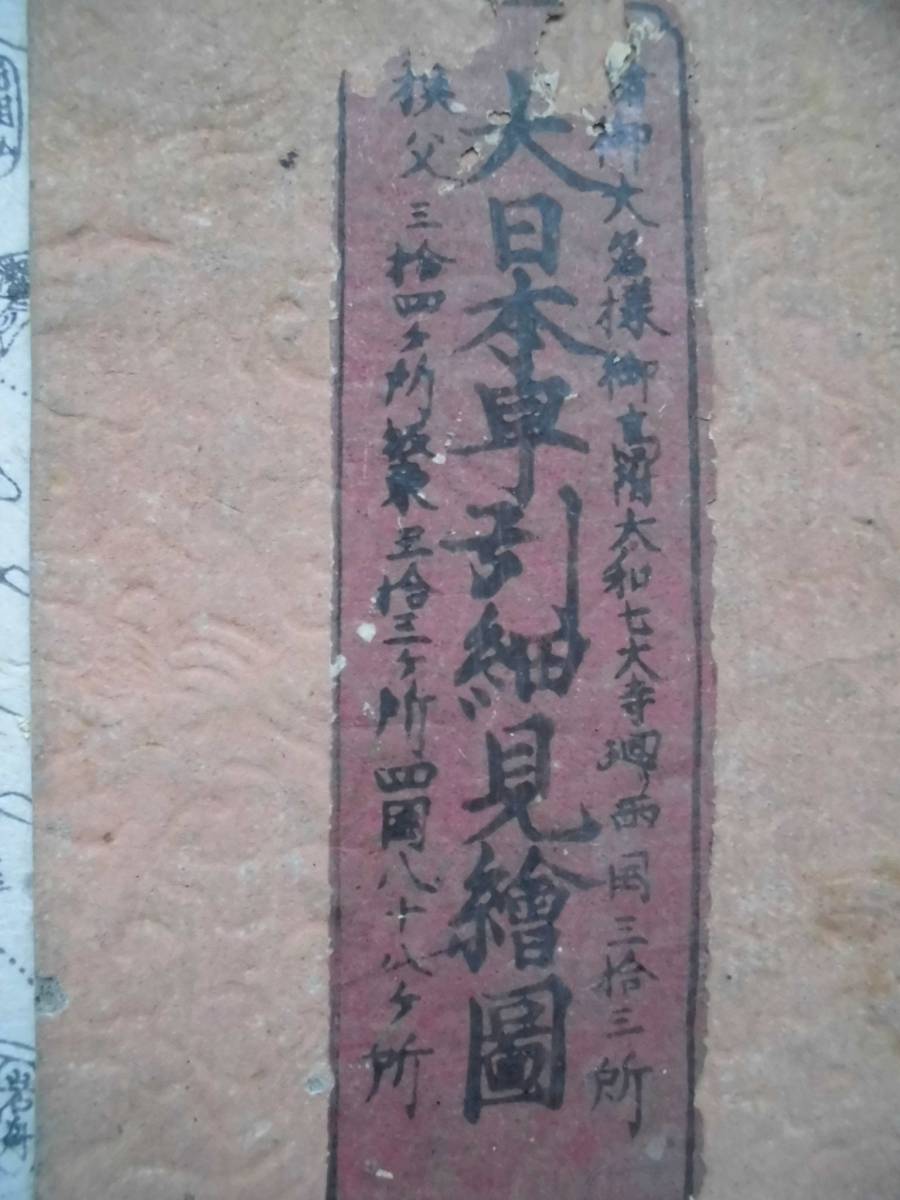 御大名様御高附大和七大寺廻り西国三拾三所
大日本早引細見繪圖
秩父三拾四ケ所坂東三拾三ケ所四国八十八ケ所